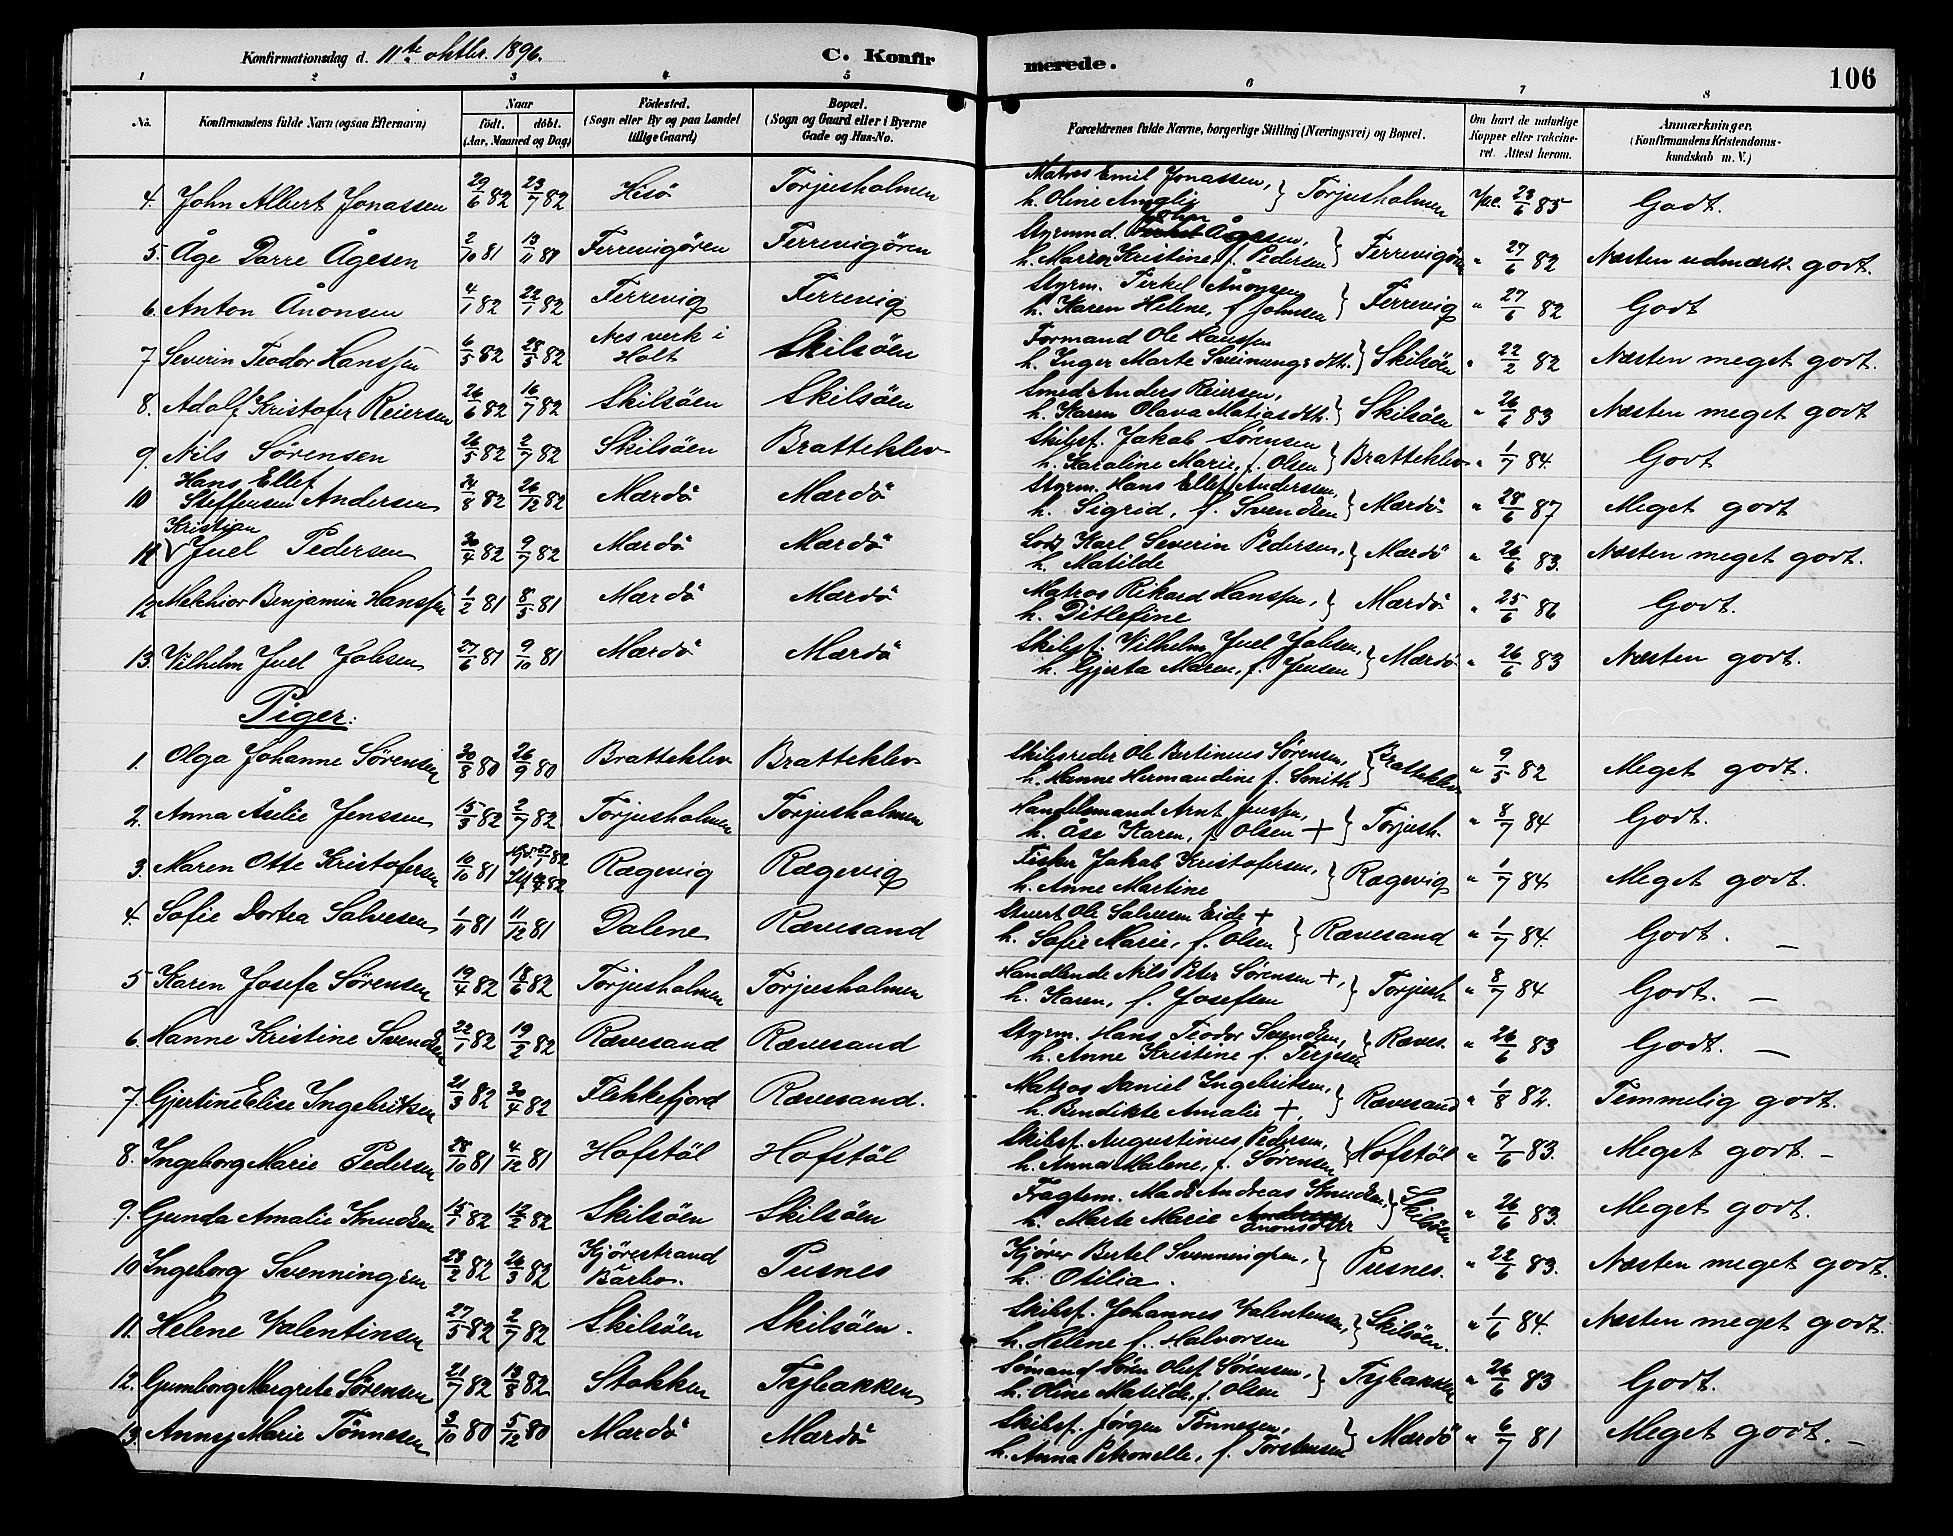 Konfirmationsdag d. 11te oktbr. 1896. C. Konfir
merede. 106
1 2 3 4 5 6 7 8
No. Konfirmandens fulde Navn (ogsaa Efternavn) Naar födt. döbt. (Aar, Maaned og Dag) Födested. (Sogn eller By og paa Landet tillige Gaard) Bopæl. (Sogn og Gaard eller i Byerne Gade og Hus-No. Forældrenes fulde Navne, borgerlige Stilling (Næringsvei) og Bopæl. Om havt de naturlige Kopper eller vakcineret. Attest herom. Anmærkninger. (Konfirmandens Kristendomskundskab m. V.)
4. John Albert Jonassen 29/6 82 23/7 82 Hisö Torjusholmen Matros Emil Jonassen, h. Oline Amalie } Torjusholmen 23/6 85 Godt.
5. Åge Dorre Ågesen 2/10 81 13/11 81 Ferrevigören Ferrevigören Styrmnd. John Ågesen, h. Maren Kristine, f. Pedersen } Ferrevigören " 27/6 82 Næsten udmærk. godt.
6. Anton Ånonsen 4/1 82 22/1 82 Ferrevig Ferrevig Styrm. Terkel Ånonsen h. Karen Helene, f Johnsen } Ferrevig " 27/6 82 Godt
7 Severin Teodor Hanssen 6/5 82 28/5 82 Nes verk i Holt Skilsöen Formand Ole Hanssen h. Inger Marte Sveinungsdtt. } Skilsöen " 22/2 82 Næsten meget godt.
8. Adolf Kristofer Reiersen 26/6 82 16/7 82 Skilsöen Skilsöen Smed Anders Reiersen, h. Karen Olava Matiasdtt. } Skilsöen " 26/6 83 Næsten meget godt
9. Nils Sörensen 26/5 82 2/7 82 Skilsöen Bratteklev Skibsf. Jakob Sörensen h. Karoline Marie, f. Olsen } Bratteklev " 1/7 84. Godt
10 Hans Ellef Steffensen Andersen 24/8 82 26/12 82 Mærdö Mærdö Styrm. Hans Ellef Andersen, h. Sigrid, f. Svendsen } Mærdö " 28/6 87 Meget godt
11 Kristian Juel Pedersen 30/4 82 9/7 82 Mærdö Mærdö Lods Karl Severin Pedersen, h. Matilde } Mærdö " 26/6 83. Næsten meget godt.
12 Melchior Benjamin Hanssen 1/2 81 8/5 81 Mærdö Mærdö Matros Rikard Hanssen, h. Ditlefine } Mærdö " 25/6 86 Godt.
13. Vilhelm Juel Jahsen 27/6 81 9/10 81 Mærdö Mærdö Skibsf. Vilhelm Juel Jahsen, h. Gjerta Maren, f. Jensen } Mærdö " 26/6 83 Næsten godt.
Piger:
1. Olga Johanne Sörensen 30/8 80 26/9 80 Bratteklev Bratteklev Skibsreder Ole Bertinius Sörensen, h. Hanne Hermandine f. Smith } Bratteklev " 9/5 82 Meget godt.
2. Anna Åselie Jenssen 15/3 82 2/7 82 Torjusholmen Torjusholmen Handelsmand Arnt Jenssen, h. Åse Karen, f. Olsen + } Torjush. " 8/7 84 Godt.
3. Maren Otte Kristofersen 10/10 81 Rægevig Rægevig Fisker Jakob Kristofersen, h. Anne Martine } Rægevig " 1/7 84 Meget godt.
4. Sofie Dortea Salvesen 1/11 81 11/12 81 Dalene Rævesand Stuert Ole Salvesen Eide + h. Sofie Marie, f. Olsen } Rævesand " 1/7 84. Godt.
5 Karen Josefa Sörensen 19/4 82 18/6 82 Torjusholmen Torjusholmen Handlende Nils Peter Sörensen +, h. Karen, f. Josefsen } Torjush " 8/7 84 Godt.
6. Hanne Kristine Svendsen 22/1 82 19/2 82 Rævesand Rævesand Styrm. Hans Teodor Svendsen, h. Anne Kristine f. Terjesen } Ræves. " 26/6 83 Godt.
7. Gjertine Elise Ingebritsen 21/3 82 30/4 82 Flekkefjord Rævesand. Matros Daniel Ingebritsen, h. Bendikte Amalie + } Rævesand " 1/8 82. Temmelig godt.
8. Ingeborg Marie Pedersen 28/10 81 4/12 81 Hofstöl Hofstöl Skibsf. Augustinus Pedersen, h. Anna Malene, f. Sörensen } Hofstöl " 7/6 83. Meget godt.
9. Gunda Amalie Knudsen 15/1 82 12/2 82 Skilsöen Skilsöen Fragtem. Mads Andreas Knudsen, h. Marte Marie Ånonsdtr } Skilsöen " 26/6 83. Meget godt.
10 Ingeborg Svenningsen 23/2 82 26/3 82 Kjörestrand Barbo. Pusnes Kjörer Bertel Svenningsen, h. Otilia. } Pusnes. " 22/6 83. Næsten meget godt.
11. Helene Valentinsen 27/5 82 2/7 82 Skilsöen Skilsöen. Skibsf. Johannes Valentinsen, h. Helene f. Halvorsen } Skilsöen. " 1/6 84. Næsten meget godt.
12. Gumborg Margrete Sörensen 21/7 82 13/8 82 Stokken Tejbakken Sömand Sören Oluf Sörensen, h. Oline Matilde, f. Olsen } Tejbakken " 26/6 83 Godt.
13. Anny Marie Tönnesen 3/10 80 5/12 80 Mærdö Mærdö Skibsf. Jörgen Tönnesen, h. Anna Petronelle, f. Torstensen } Mærdö " 6/7 81 Meget godt.